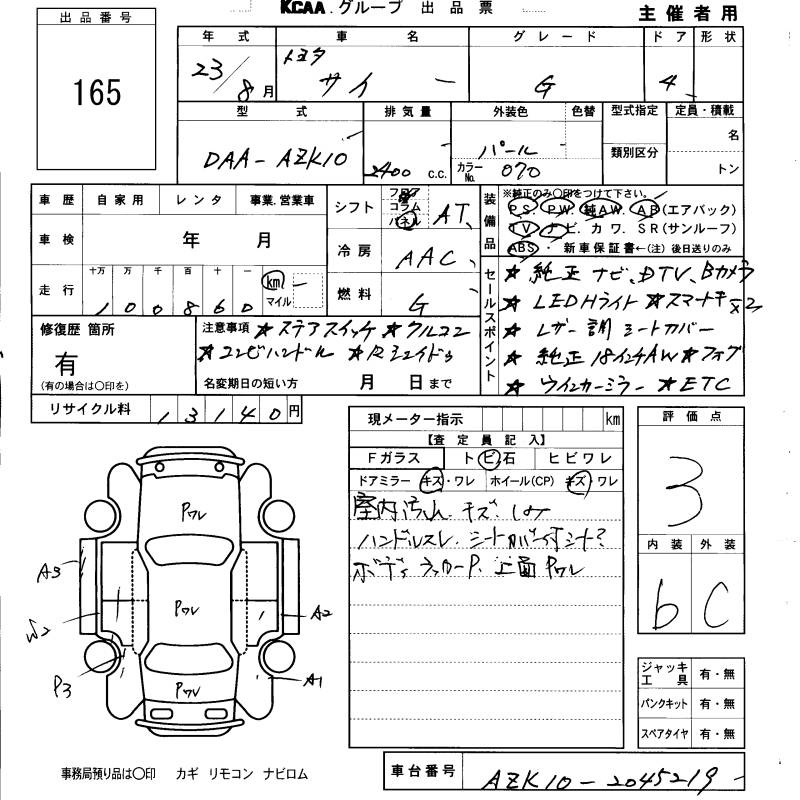 KCAA.グループ 出品票
主催者用
出品番号
165
年式 車名 グレード ドア 形状
23/8月 トヨタ サイー G 4
型式 排気量 外装色 色替 型式指定 定員・積載
DAA-AZK10 2400 c.c. パール カラーNo. 070 類別区分 名 トン
車歴 自家用 レンタ 事業.営業車
車検 年 月
走行 十万 万 千 百 十 一 km マイル
100860
シフト フロア コラム パネル AT
冷房 AAC
燃料 G
装備品 ※純正のみ○印をつけて下さい。
PS. PW. 純AW. AB(エアバック)
TV. ナビ. カワ. SR(サンルーフ)
ABS. 新車保証書←(注)後日送りのみ
セールスポイント
★純正ナビ、DTV、Bカメラ
★LEDHライト ★スマートキーx2
★レザー調シートカバー
★純正18インチAW★フォグ
★ウインカーミラー ★ETC
修復歴 箇所
有
(有の場合は○印を)
注意事項 ★ステアスイッチ ★クルコン
★コンビハンドル ★Rシェイド
名変期日の短い方 月 日まで
リサイクル料 13140円
現メーター指示 km
【査定員記入】
Fガラス トビ石 ヒビワレ
ドアミラー キズ・ワレ ホイール(CP) キズ・ワレ
室内汚れ.キズ.しみ
ハンドルスレ.シートカバー付シート?
ボディ ラッカーP. 上面Pワレ
評価点
3
内装 外装
b C
Pワレ
A3
Pワレ
A2
W2
P3
Pワレ
A1
ジャッキ工具 有・無
パンクキット 有・無
スペアタイヤ 有・無
事務局預り品は○印 カギ リモコン ナビロム
車台番号 AZK10-2045219